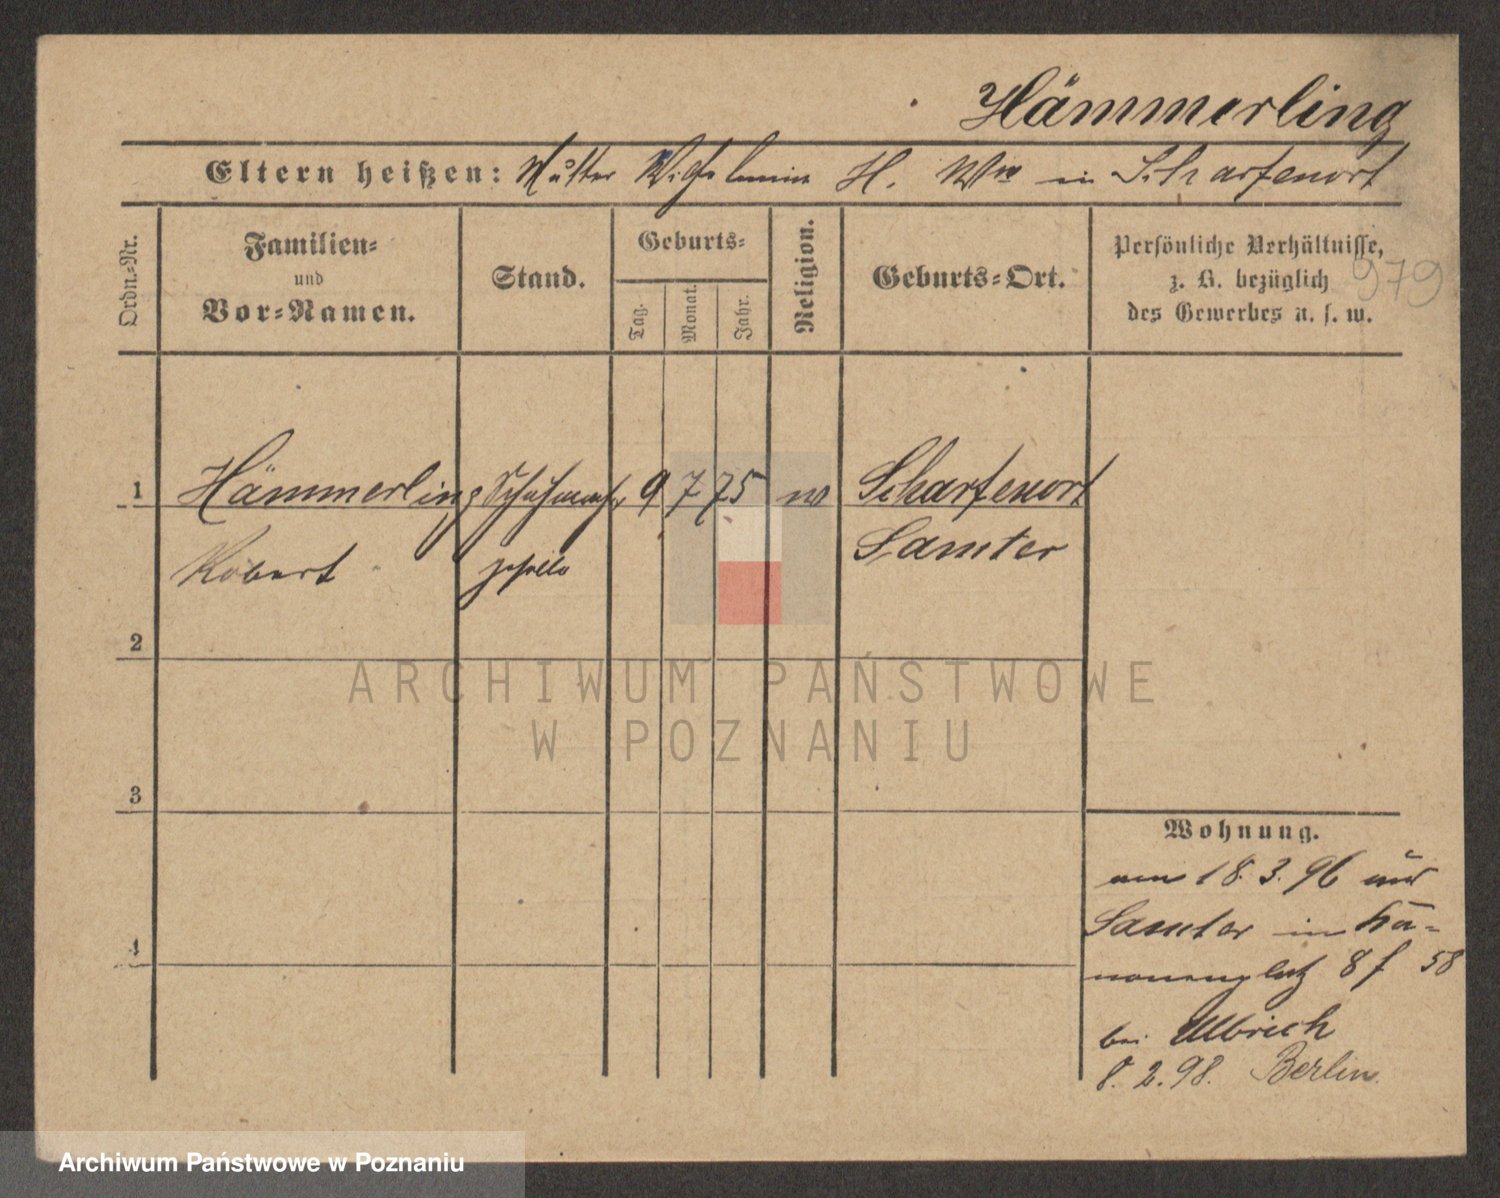 Hämmerling
Eltern heißen: Mutter Wilhelmine H. Ww in Scharfenort
Ordn.-Nr.
Familien-
und
Vor-Namen.
Stand.
Geburts-
Tag.
Monat.
Jahr.
Religion.
Geburts-Ort.
Persönliche Verhältnisse,
z. B. bezüglich
des Gewerbes u. s. w.
979
1 Hämmerling 9 7 75 Scharfenort
Robert geselle Samter
2
3
4
Wohnung.
18. 3. 96 aus
Samter in Ka-
nonenplatz 8 f 58
bei Ulbrich
8. 2. 98. Berlin
ARCHIWUM PAŃSTWOWE
W POZNANIU
Archiwum Państwowe w Poznaniu